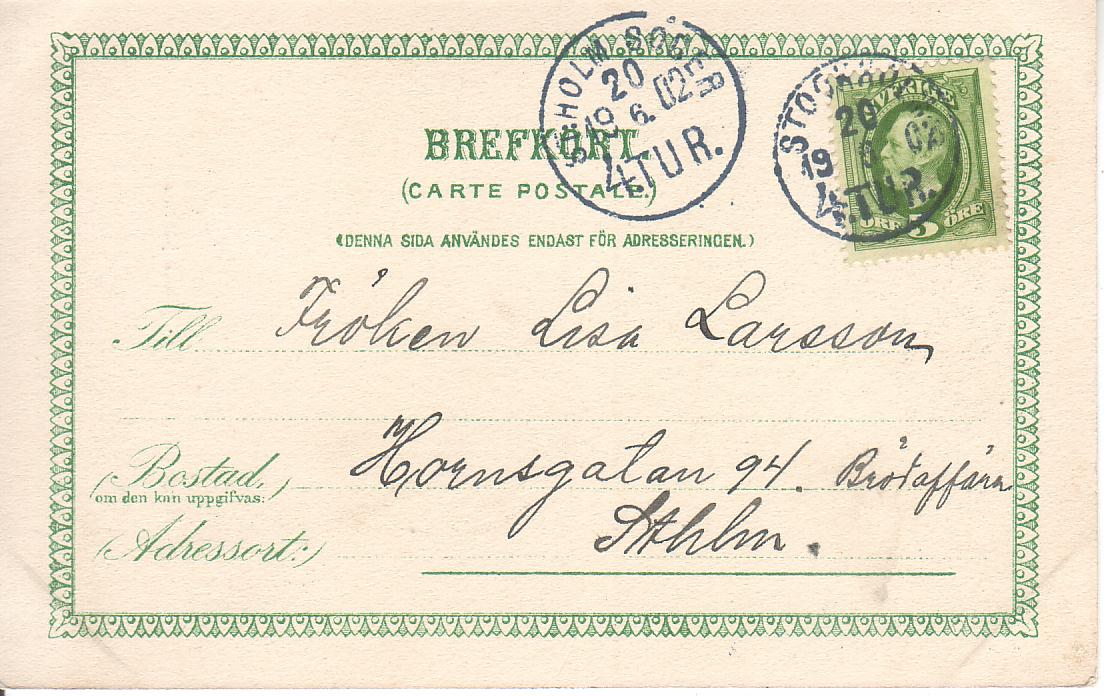 STHOLM SÖDER
20
19 6. 02
4.TUR.
STOCKHOLM
20
19 6 02
4.TUR.
SVERIGE
ÖRE 5 ÖRE
BREFKORT
(CARTE POSTALE.)
(DENNA SIDA ANVÄNDES ENDAST FÖR ADRESSERINGEN.)
Till Fröken Lisa Larsson
(Bostad,) Hornsgatan 94. Brödaffären
om den kan uppgifvas:
(Adressort:) Sthlm.